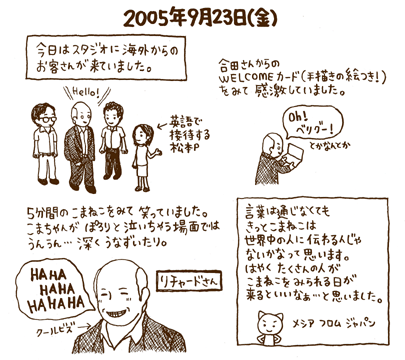 2005年9月23日(金)
今日はスタジオに海外からの
お客さんが来ていました。
Hello!
英語で
接待する
松本P
合田さんからの
WELCOMEカード(手描きの絵つき!)
をみて 感激していました。
Oh!
ベリグー!
とかなんとか
5分間のこまねこをみて 笑っていました。
こまちゃんが ぽろりと泣いちゃう場面では
うんうん…深くうなずいたり。
HAHA
HAHA
HAHAHA
クールビズ
リチャードさん
言葉は通じなくても
きっとこまねこは
世界中の人に伝わる人じゃ
ないかなって思います。
はやく たくさんの人が
こまねこをみられる日が
来るといいなぁ…と思いました。
メシア フロム ジャパン